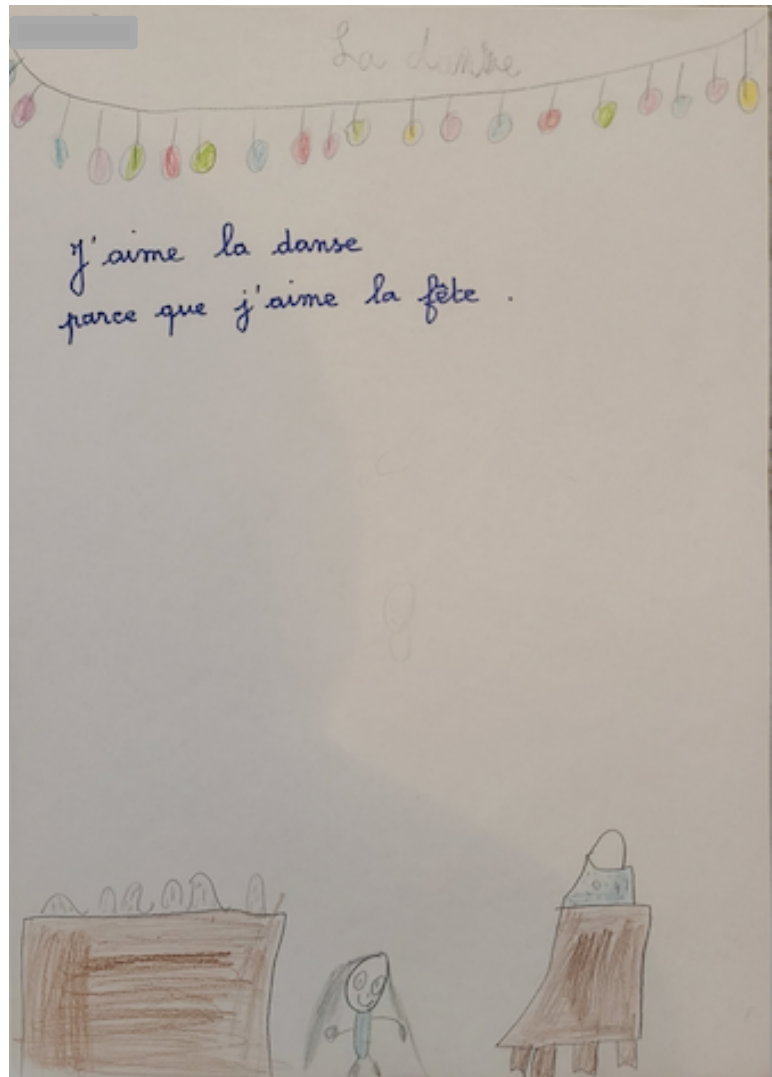 La danse
J'aime la danse
parce que j'aime la fête .